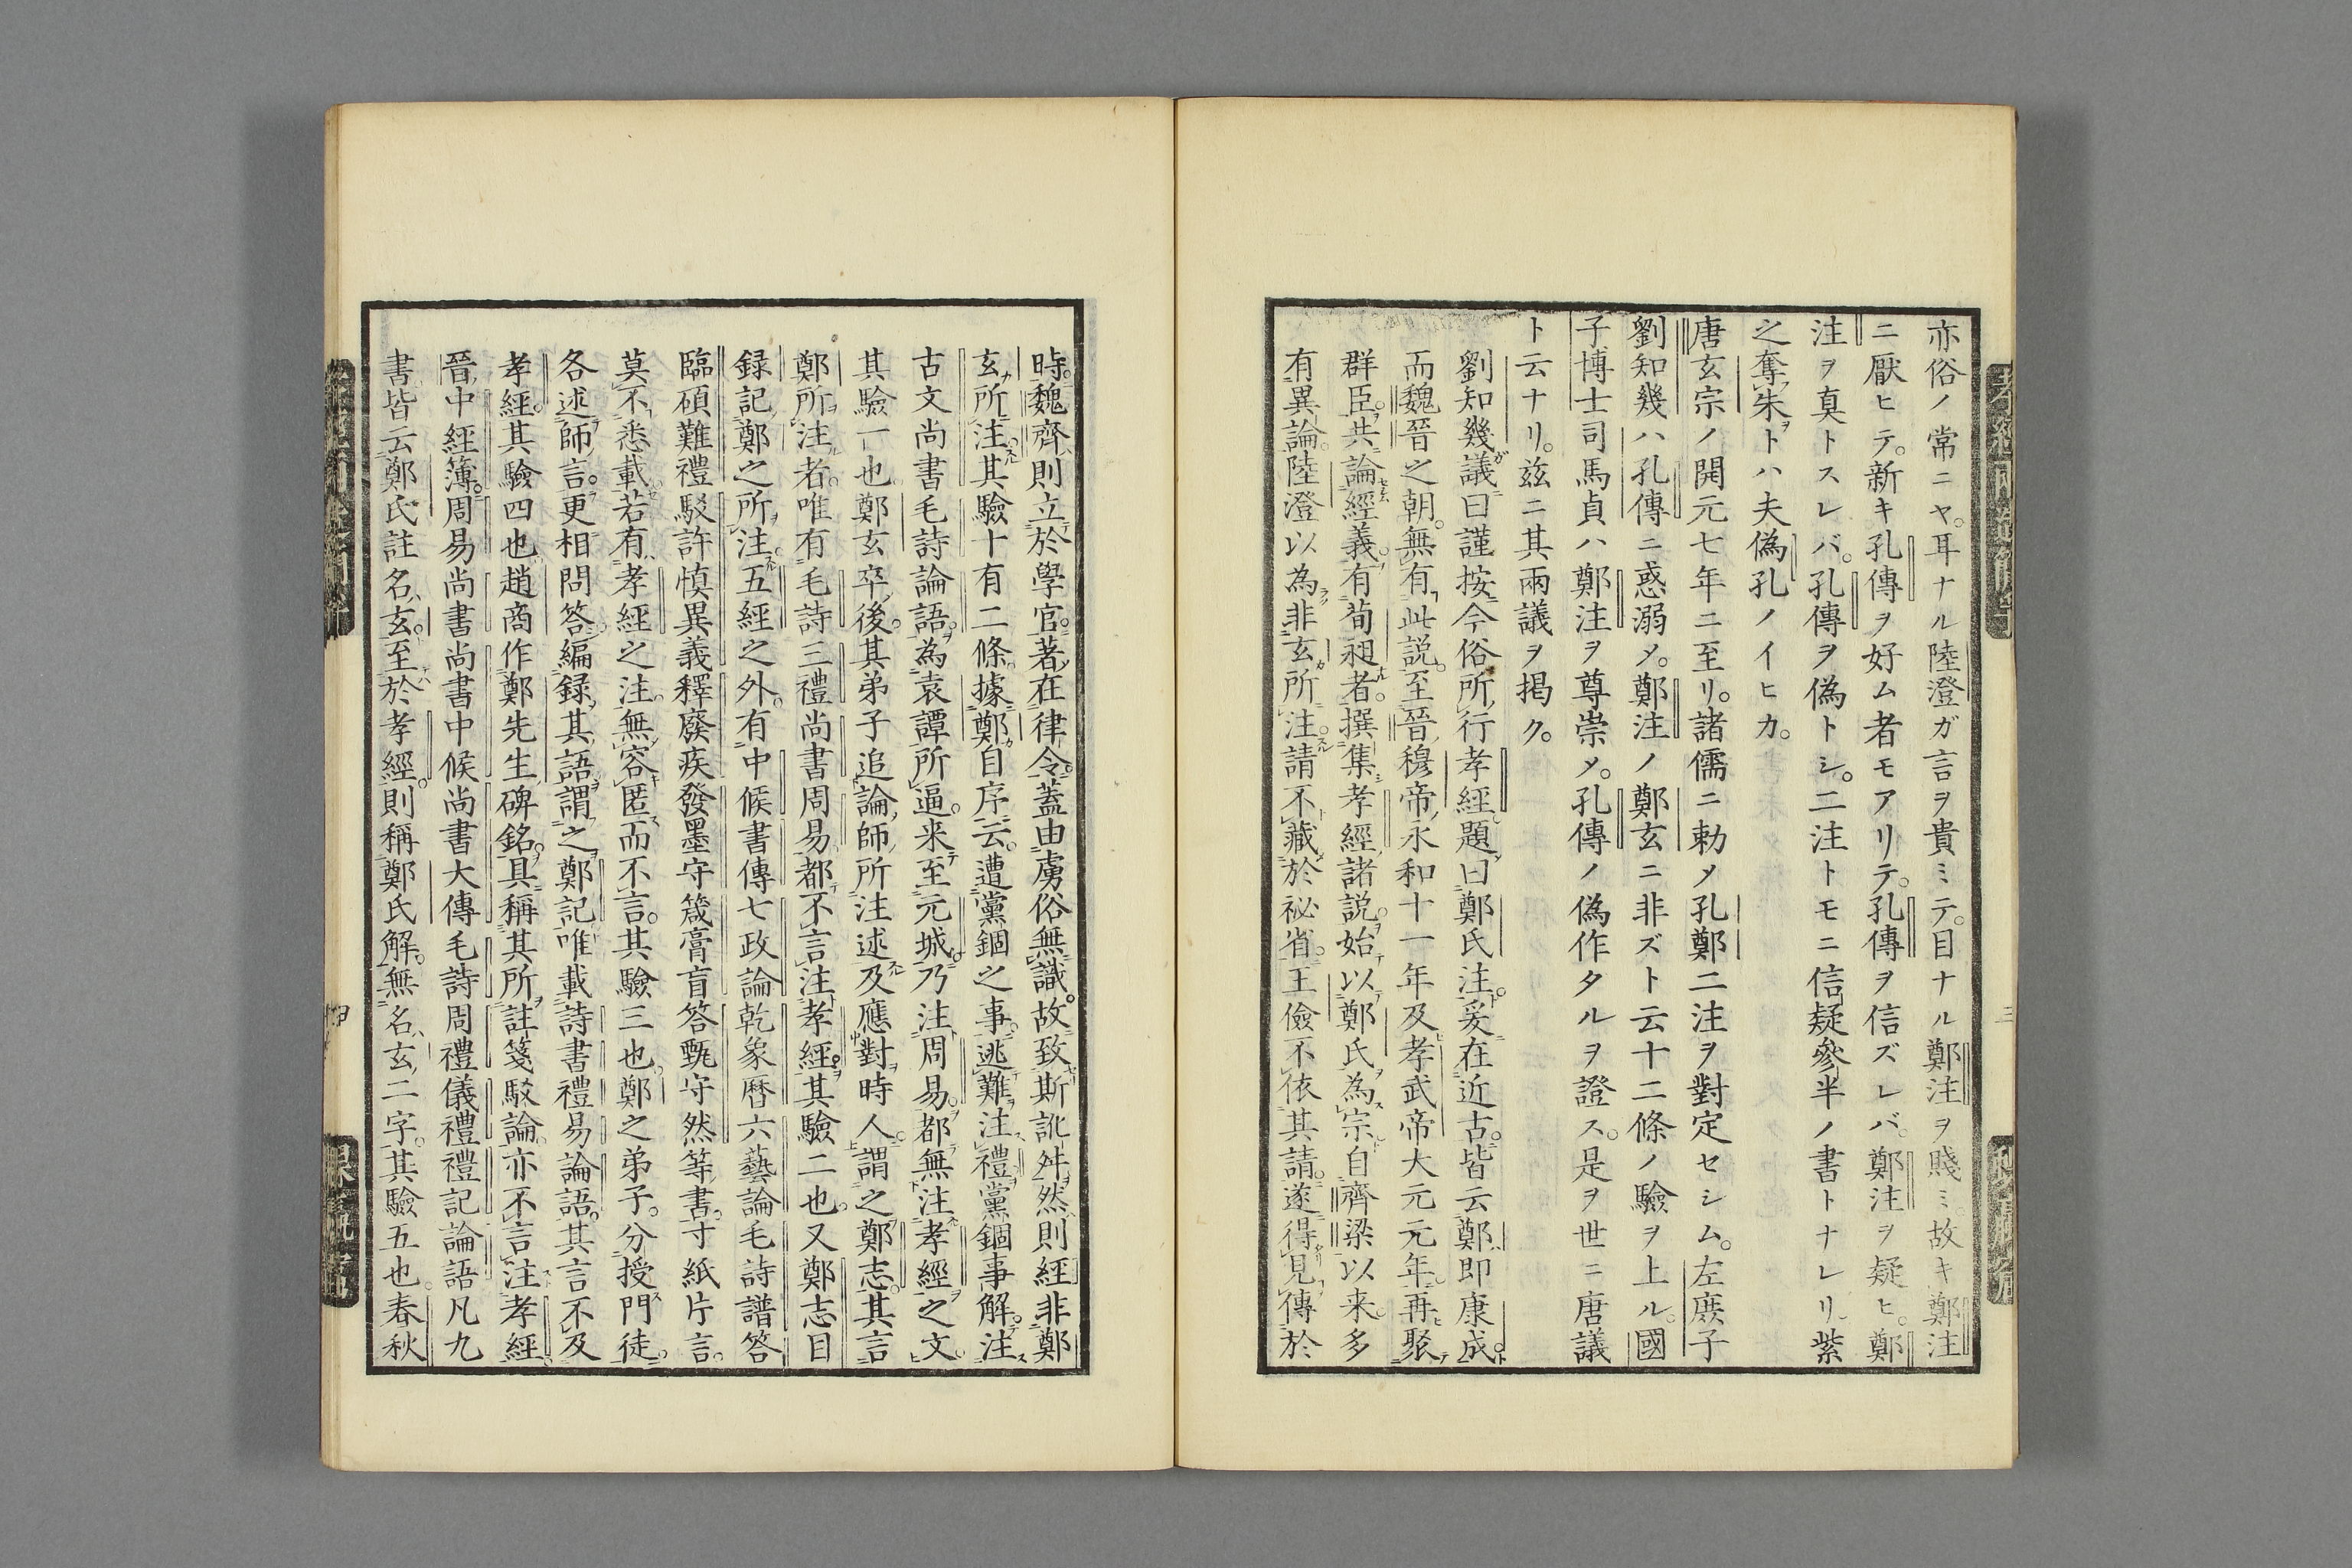 亦俗ノ常ニヤ。耳ナル陸澄ガ言ヲ貴ミテ。目ナル鄭注ヲ賤ミ。故キ鄭注
ニ厭ヒテ。新キ孔傳ヲ好ム者モアリテ。孔傳ヲ信ズレバ。鄭注ヲ疑ヒ。鄭
注ヲ真トスレバ。孔傳ヲ偽トシ。二注トモニ信疑參半ノ書トナレリ。紫
之奪朱ヲトハ夫偽孔ノイヒカ。
唐玄宗ノ開元七年ニ至リ。諸儒ニ勅メ孔鄭二注ヲ對定セシム。左庶子
劉知幾ハ孔傳ニ惑溺メ。鄭注ノ鄭玄ニ非ズト云十二條ノ驗ヲ上ル。國
子博士司馬貞ハ鄭注ヲ尊崇メ。孔傳ノ偽作タルヲ證ス。是ヲ世ニ唐議
ト云ナリ。玆ニ其兩議ヲ掲ク。
劉知幾議曰謹按今俗所行孝經題曰鄭氏注。爰在近古。皆云鄭即康成。
而魏晉之朝。無有此説。至晉穆帝永和十一年及孝武帝大元元年。再聚
群臣。共論經義。有荀昶者。撰集孝經諸説。始以鄭氏為宗。自齊梁以来。多
有異論。陸澄以為非玄所注。請不藏於祕省。王儉不依其請。遂得見傳於
時。魏齊則立於學官。著在律令。蓋由虜俗無識。故致斯訛舛。然則經非鄭
玄所注。其驗十有二條。據鄭自序云。遭黨錮之事。逃難注禮黨錮事解。注
古文尚書毛詩論語。為袁譚所逼。来至元城。乃注周易。都無注孝經之文。
其驗一也。鄭玄卒後。其弟子追論師所注述及應對時人。謂之鄭志。其言
鄭所注者。唯有毛詩三禮尚書周易。都不言注孝經。其驗二也。又鄭志目
録記鄭之所注。五經之外。有中候書傳七政論乾象暦六藝論毛詩譜答
臨碩難禮駁許慎異義釋廢疾發墨守箴膏肓答甄守然等書。寸紙片言。
莫不悉載。若有孝經之注。無容匿而不言。其驗三也。鄭之弟子。分授門徒。
各述師言。更相問答。編録其語。謂之鄭記。唯載詩書禮易論語。其言不及
孝經。其驗四也。趙商作鄭先生碑銘。具稱其所註箋駁論。亦不言注孝經。
晉中經簿。周易尚書尚書中候尚書大傳毛詩周禮儀禮禮記論語凡九
書。皆云鄭氏註名玄。至於孝經。則稱鄭氏解。無名玄二字。其驗五也。春秋